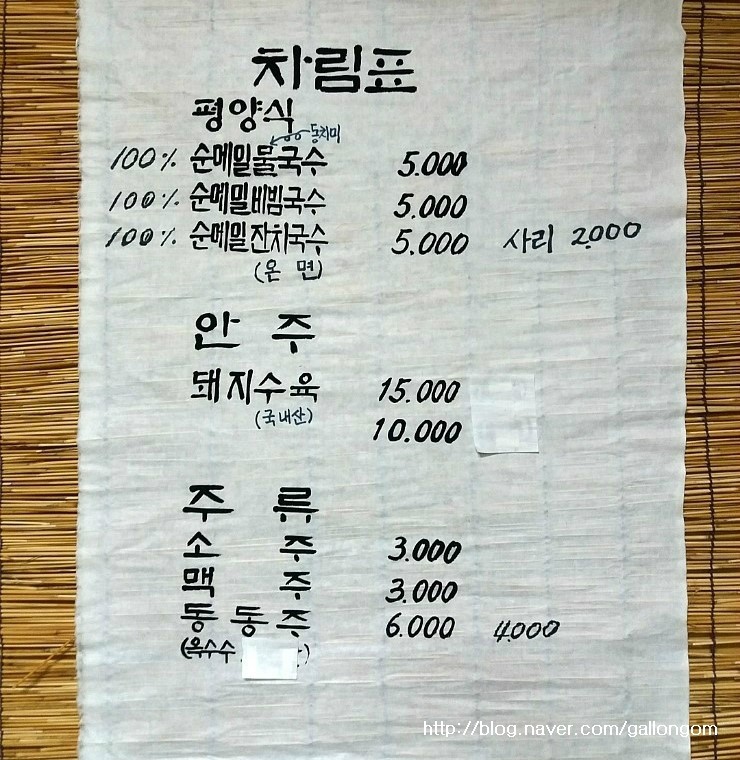 차림표
평양식
동치미
100% 순메밀물국수 5.000
100% 순메밀비빔국수 5.000
100% 순메밀잔치국수 5.000 사리 2.000
(온 면)
안 주
돼지수육 15.000
(국내산) 10.000
주 류
소 주 3.000
맥 주 3.000
동동주 6.000 4.000
(옥수수 )
http://blog.naver.com/gallongom